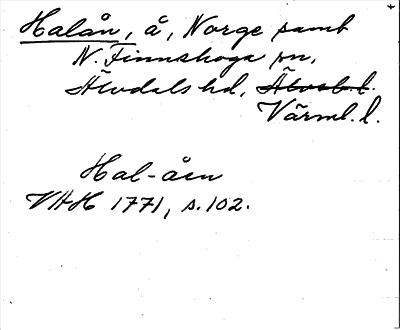 Halån, å, Norge samt
N. Finnskoga sn,
Älvdals hd, Älvsb. l.
Värml. l.
Hal-åen
VAH 1771, s. 102.